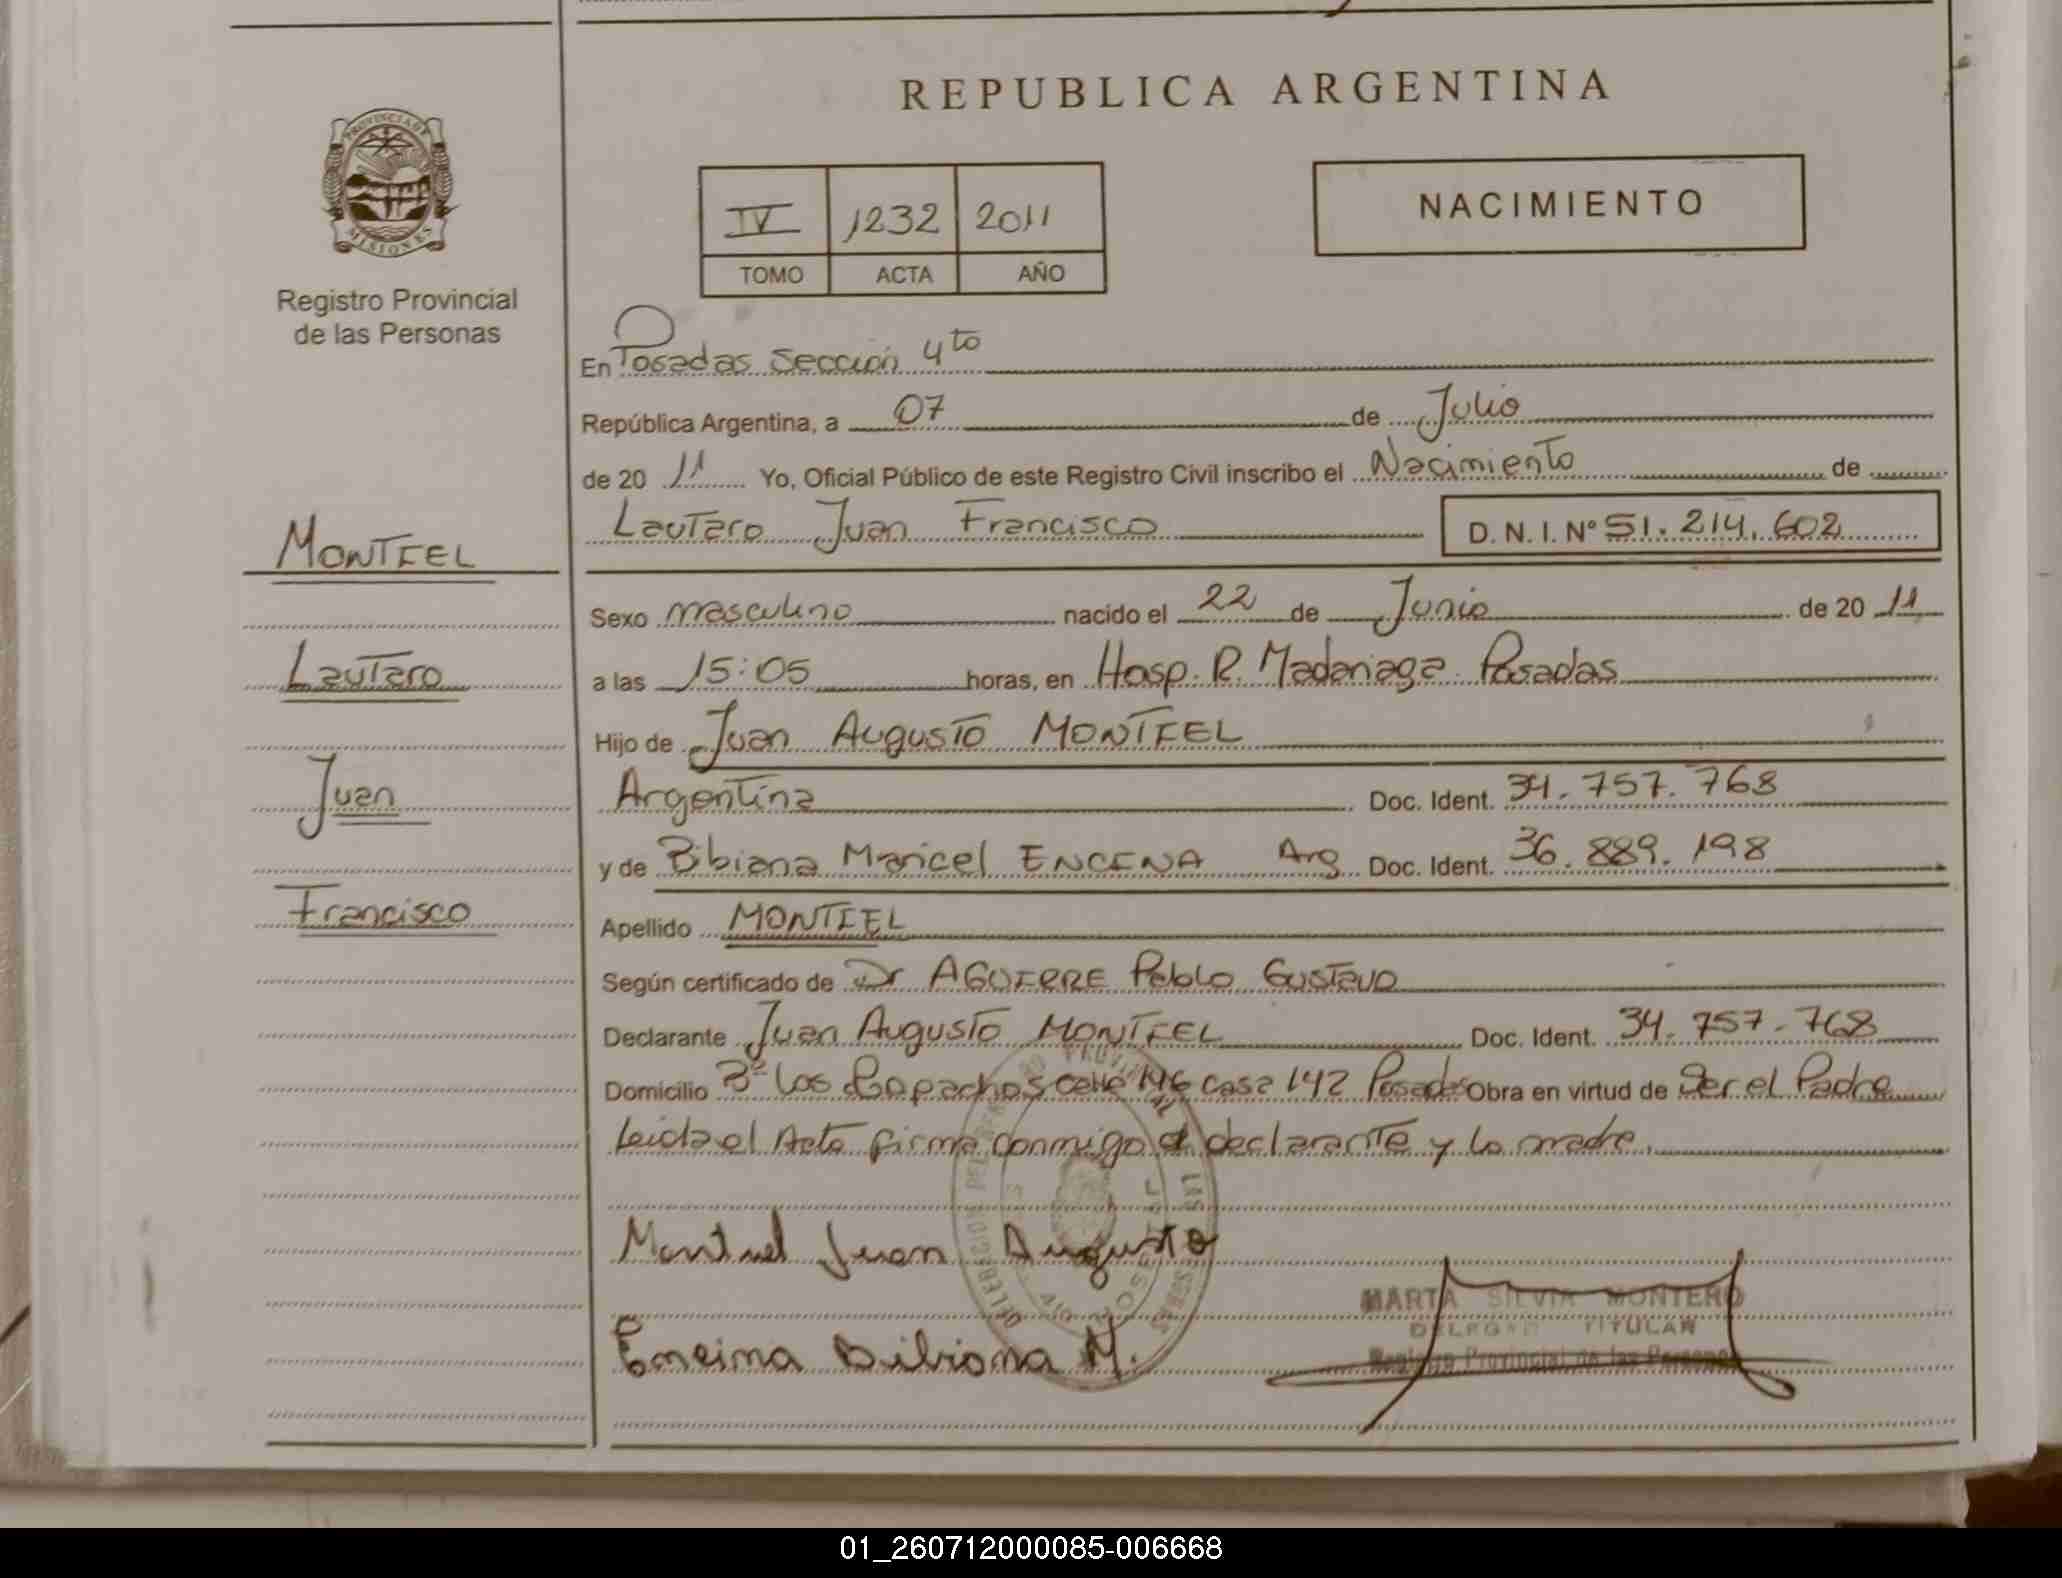 REPUBLICA ARGENTINA
PROVINCIA DE
MISIONES
Registro Provincial
de las Personas
IV 1232 2011
TOMO ACTA AÑO
NACIMIENTO
En Posadas Sección 4to
República Argentina, a 07 de Julio
de 20 11 Yo, Oficial Público de este Registro Civil inscribo el Nacimiento de
Lautaro Juan Francisco D. N. I. Nº 51.214.602
MONTIEL
Lautaro
Juan
Francisco
Sexo masculino nacido el 22 de Junio de 20 11
a las 15:05 horas, en Hosp. R. Madariaga. Posadas
Hijo de Juan Augusto MONTIEL
Argentina Doc. Ident. 34.757.768
y de Bibiana Maricel ENCINA Arg Doc. Ident. 36.889.198
Apellido MONTIEL
Según certificado de Dr AGUIRRE Pablo Gustavo
Declarante Juan Augusto MONTIEL Doc. Ident. 34.757.768
Domicilio Bº Los Lapachos calle 146 casa 142 Posadas Obra en virtud de Ser el Padre
Leida el Acta firma conmigo el declarante y la madre.
Montiel Juan Augusto
Encina Bibiana M.
MARTA SILVIA MONTERO
TITULAR
Registro Provincial de las Personas
01_260712000085-006668